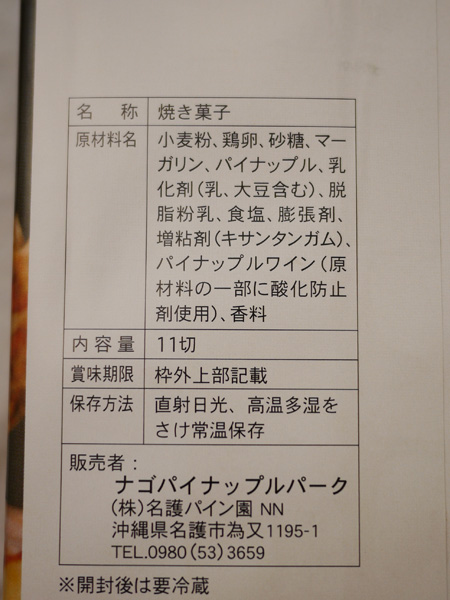 名称 焼き菓子
原材料名 小麦粉、鶏卵、砂糖、マー
ガリン、パイナップル、乳
化剤(乳、大豆含む)、脱
脂粉乳、食塩、膨張剤、
増粘剤(キサンタンガム)、
パイナップルワイン(原
材料の一部に酸化防止
剤使用)、香料
内容量 11切
賞味期限 枠外上部記載
保存方法 直射日光、高温多湿を
さけ常温保存
販売者:
ナゴパイナップルパーク
(株)名護パイン園 NN
沖縄県名護市為又1195-1
TEL.0980(53)3659
※開封後は要冷蔵